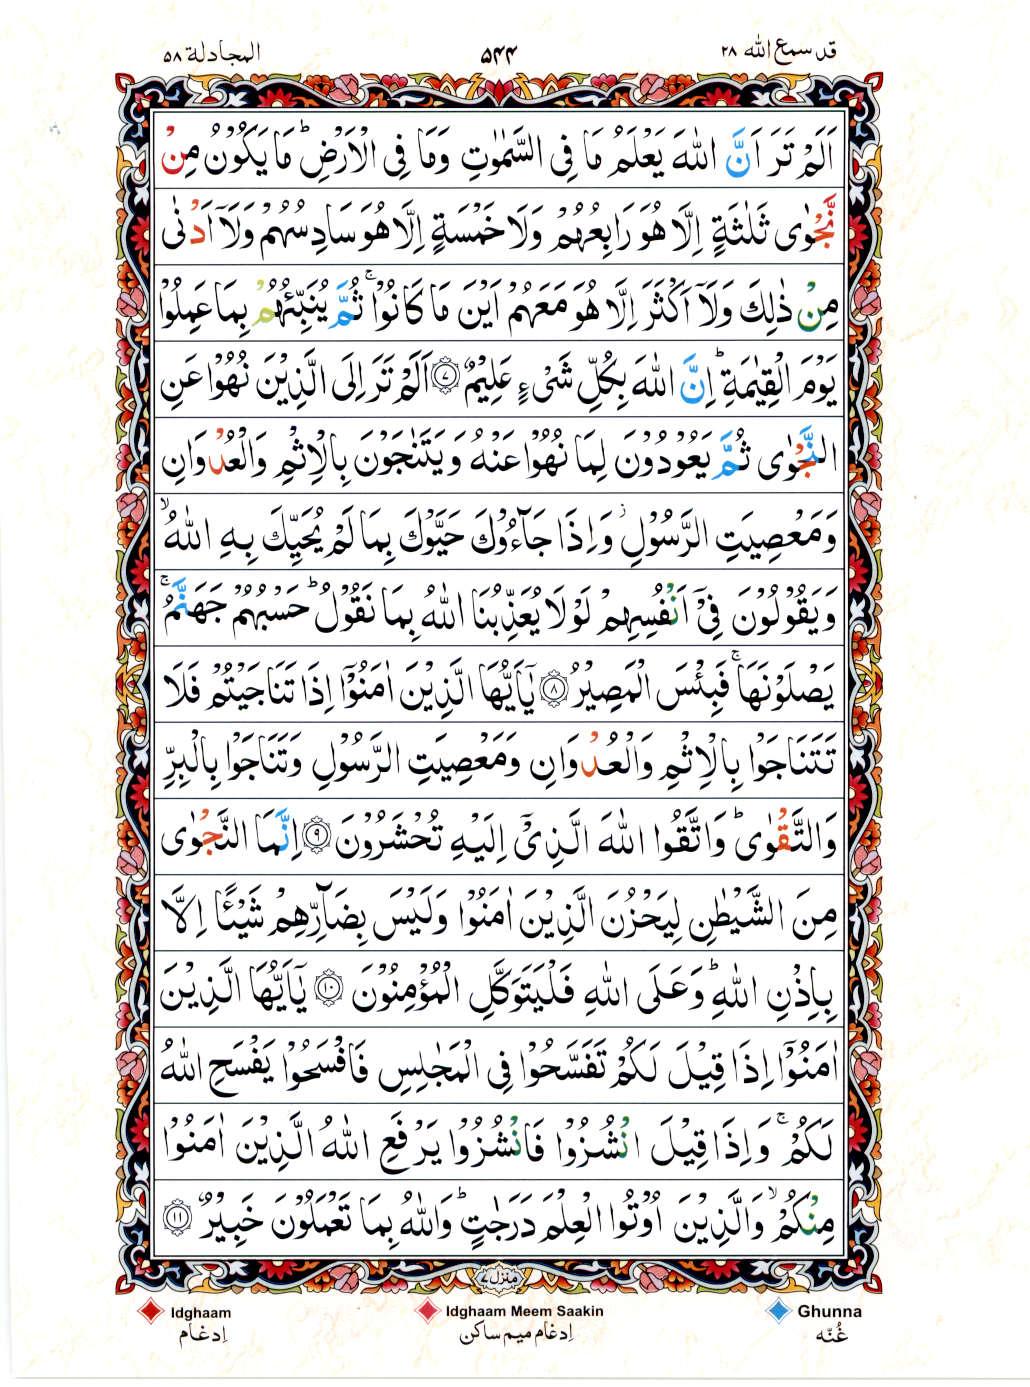 قد سمع الله ٢٨
۵۴۴
المجادلة ۵۸
اَلَمۡ تَرَ اَنَّ اللّٰهَ يَعۡلَمُ مَا فِى السَّمٰوٰتِ وَمَا فِى الۡاَرۡضِ‌ؕ مَا يَكُوۡنُ مِنۡ
نَّجۡوٰى ثَلٰثَةٍ اِلَّا هُوَ رَابِعُهُمۡ وَلَا خَمۡسَةٍ اِلَّا هُوَ سَادِسُهُمۡ وَلَاۤ اَدۡنٰى
مِنۡ ذٰلِكَ وَلَاۤ اَكۡثَرَ اِلَّا هُوَ مَعَهُمۡ اَيۡنَ مَا كَانُوۡا‌ۚ ثُمَّ يُنَبِّئُهُمۡ بِمَا عَمِلُوۡا
يَوۡمَ الۡقِيٰمَةِ‌ؕ اِنَّ اللّٰهَ بِكُلِّ شَىۡءٍ عَلِيۡمٌ ﴿۷﴾ اَلَمۡ تَرَ اِلَى الَّذِيۡنَ نُهُوۡا عَنِ
النَّجۡوٰى ثُمَّ يَعُوۡدُوۡنَ لِمَا نُهُوۡا عَنۡهُ وَيَتَنٰجَوۡنَ بِالۡاِثۡمِ وَالۡعُدۡوَانِ
وَمَعۡصِيَتِ الرَّسُوۡلِ‌ وَاِذَا جَآءُوۡكَ حَيَّوۡكَ بِمَا لَمۡ يُحَيِّكَ بِهِ اللّٰهُۙ
وَيَقُوۡلُوۡنَ فِىۡۤ اَنۡفُسِهِمۡ لَوۡلَا يُعَذِّبُنَا اللّٰهُ بِمَا نَقُوۡلُ‌ؕ حَسۡبُهُمۡ جَهَنَّمُ‌ۚ
يَصۡلَوۡنَهَا‌ۚ فَبِئۡسَ الۡمَصِيۡرُ ﴿۸﴾ يٰۤاَيُّهَا الَّذِيۡنَ اٰمَنُوۡۤا اِذَا تَنَاجَيۡتُمۡ فَلَا
تَتَنَاجَوۡا بِالۡاِثۡمِ وَالۡعُدۡوَانِ وَمَعۡصِيَتِ الرَّسُوۡلِ وَتَنَاجَوۡا بِالۡبِرِّ
وَالتَّقۡوٰى‌ؕ وَاتَّقُوا اللّٰهَ الَّذِىۡۤ اِلَيۡهِ تُحۡشَرُوۡنَ ﴿۹﴾ اِنَّمَا النَّجۡوٰى
مِنَ الشَّيۡطٰنِ لِيَحۡزُنَ الَّذِيۡنَ اٰمَنُوۡا وَلَيۡسَ بِضَآرِّهِمۡ شَيۡـًٔا اِلَّا
بِاِذۡنِ اللّٰهِ‌ؕ وَعَلَى اللّٰهِ فَلۡيَتَوَكَّلِ الۡمُؤۡمِنُوۡنَ ﴿۱۰﴾ يٰۤاَيُّهَا الَّذِيۡنَ
اٰمَنُوۡۤا اِذَا قِيۡلَ لَكُمۡ تَفَسَّحُوۡا فِى الۡمَجٰلِسِ فَافۡسَحُوۡا يَفۡسَحِ اللّٰهُ
لَكُمۡ‌ۚ وَاِذَا قِيۡلَ انْشُزُوۡا فَانْشُزُوۡا يَرۡفَعِ اللّٰهُ الَّذِيۡنَ اٰمَنُوۡا
مِنۡكُمۡۙ وَالَّذِيۡنَ اُوۡتُوا الۡعِلۡمَ دَرَجٰتٍ‌ؕ وَاللّٰهُ بِمَا تَعۡمَلُوۡنَ خَبِيۡرٌ ﴿۱۱﴾
منزل ۷
Idghaam
Idghaam Meem Saakin
Ghunna
اِدغام
اِدغام میم ساکن
غُنّه